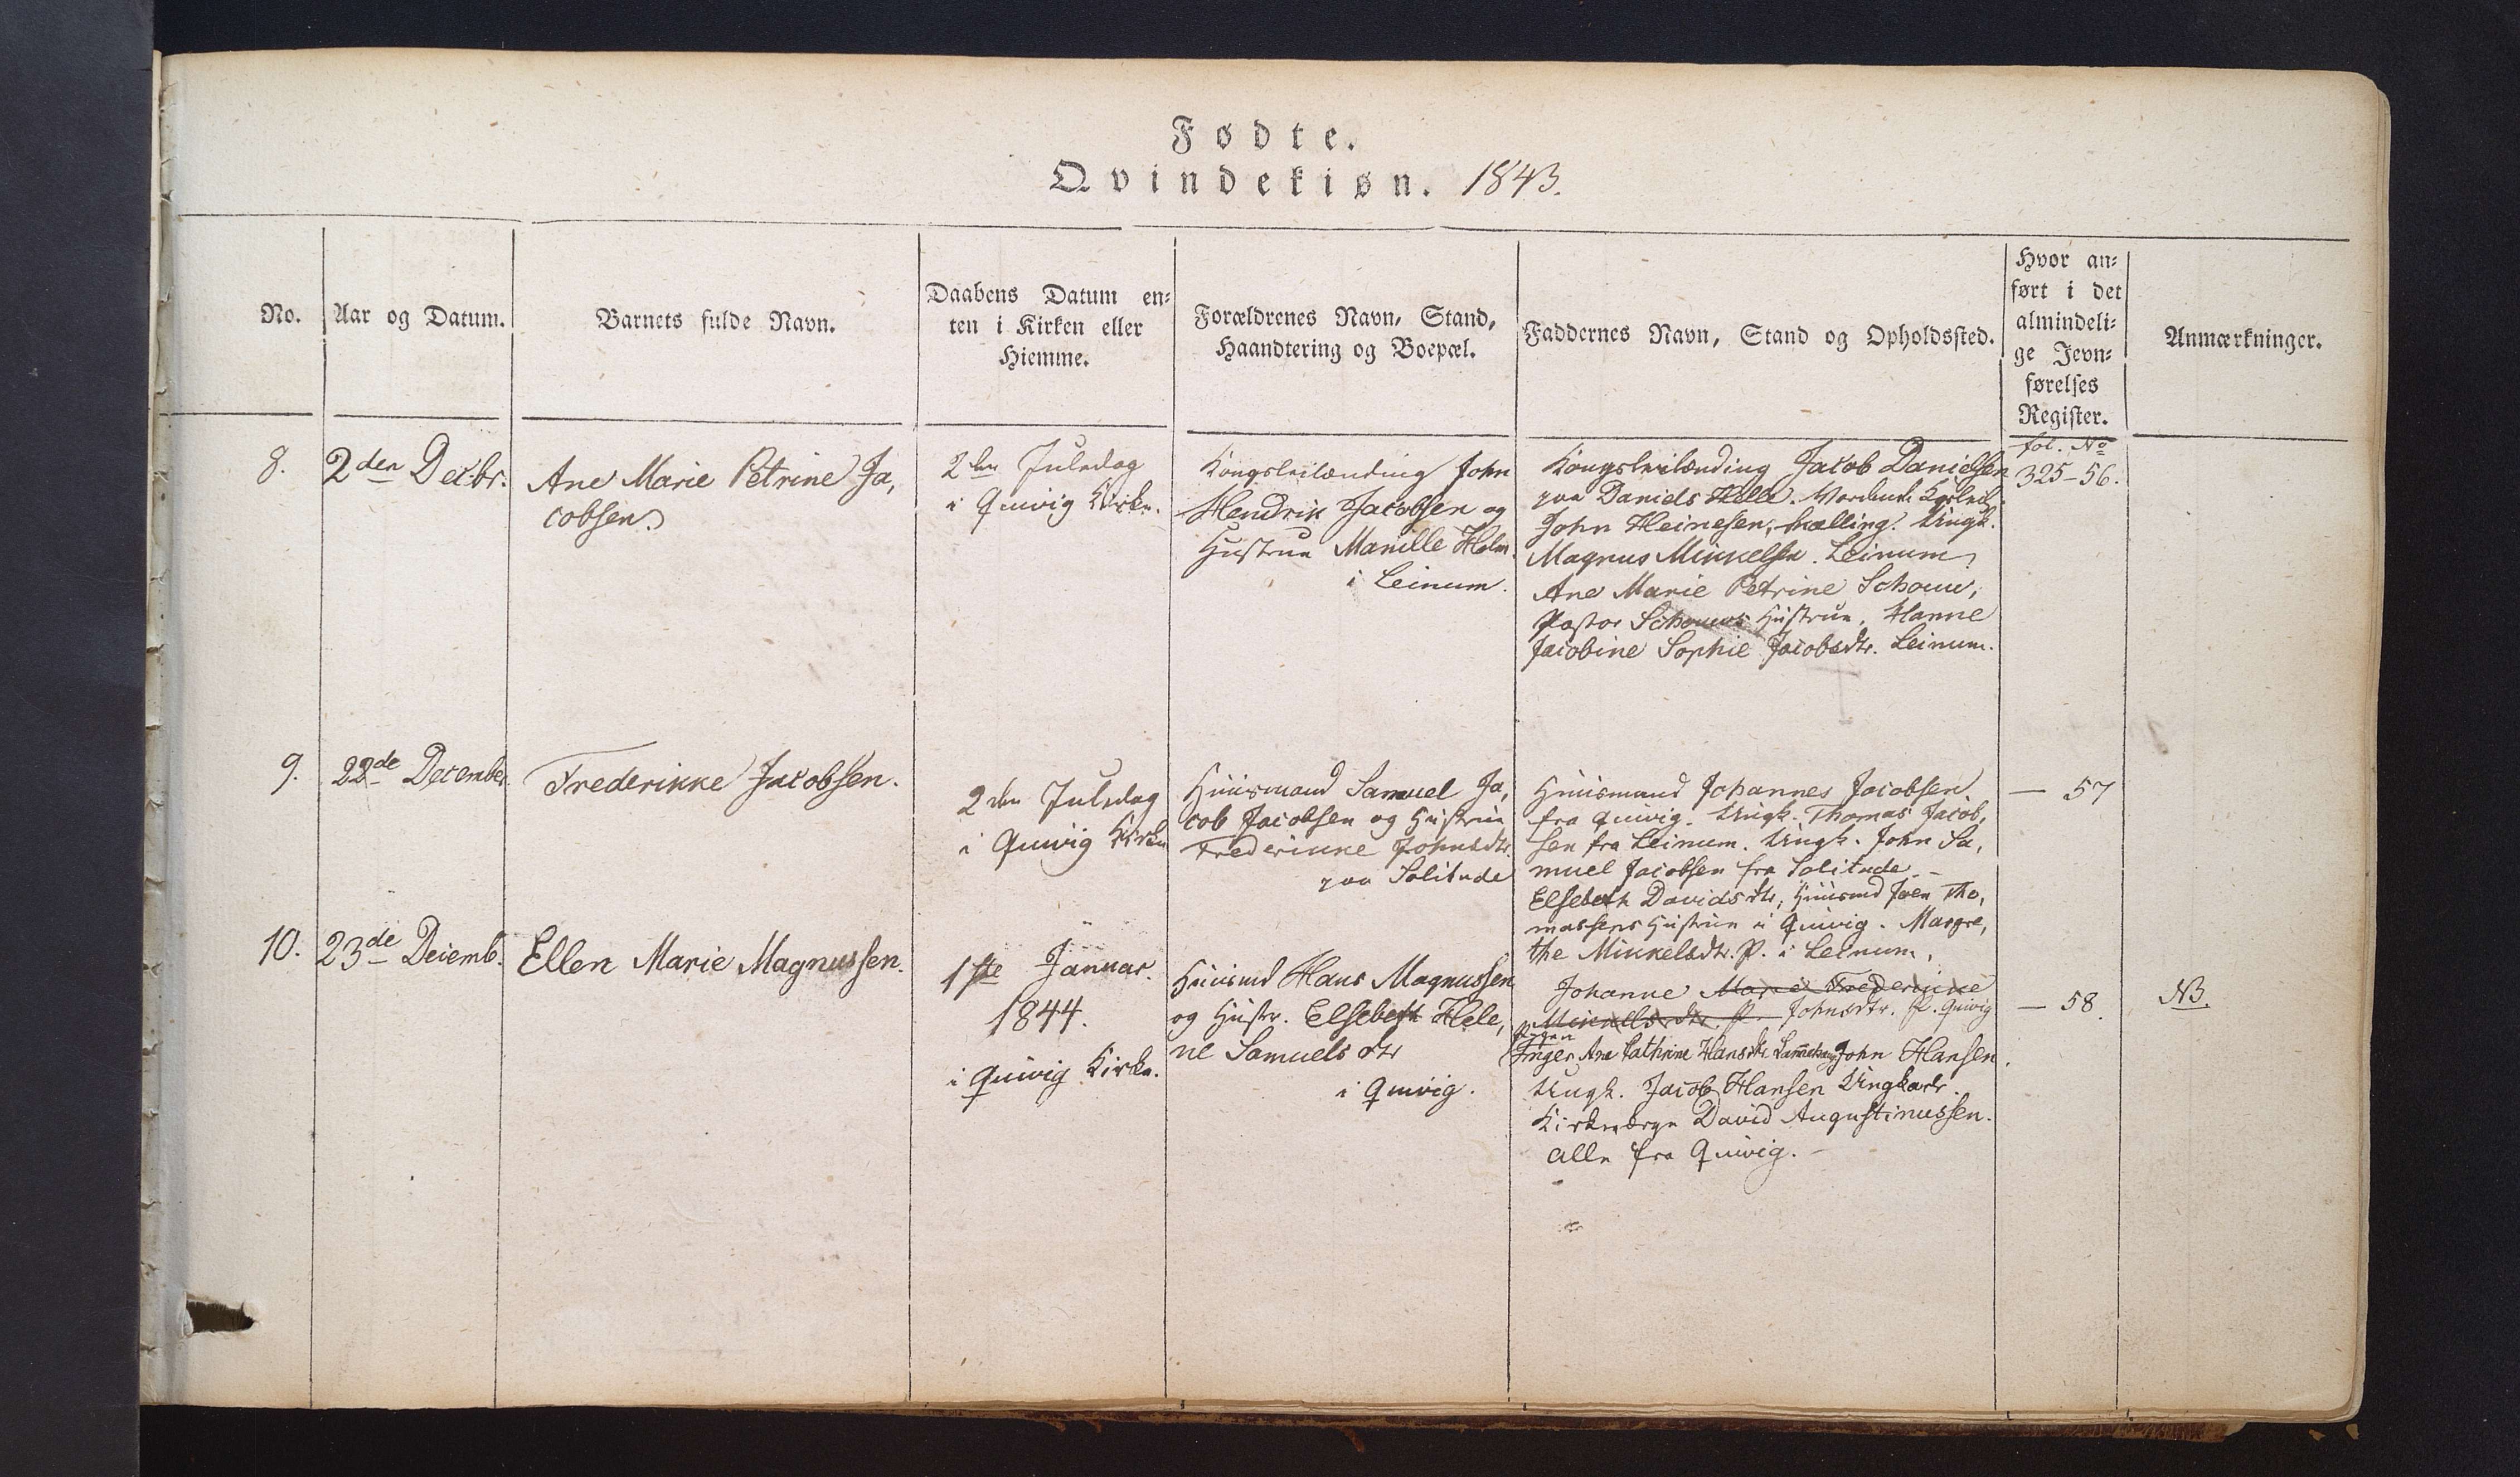 Fødte.
Qvindekiøn. 1843.
No.
Aar og Datum.
Barnets fulde Navn.
Daabens Datum en-
ten i Kirken eller
Hiemme.
Forældrenes Navn, Stand,
Haandtering og Boepæl.
Faddernes Navn, Stand og Opholdssted.
Hvor an-
ført i det
almindeli-
ge Jevn-
førelses
Register.
Anmærkninger.
8.
2den Decbr.
Ane Marie Petrine Ja,
cobsen.
2den Juledag
i Qvivig Kirke.
Kongsleilænding John
Hendrik Jacobsen og
Hustrue Manille Holm.
i Leinum.
Kongsleilænding Jacob Danielsen
paa Daniels Helle. Vordende
John Heinesen, Skælling. Ungk.
Magnus Mikkelsen. Leinum
Ane Marie Petrine Schouw,
Pastor Schouws Hustrue. Hanne
Jacobine Sophie Jacobsdtr. Leinum.
fol. No
325-56.
9.
22de December
Frederikke Jacobsen.
2den Juledag
i Qvivig Kirke
Huusmand Samuel Ja,
cob Jacobsen og Hustrue
Frederikke Johnsdtr.
paa Solitude
Huusmand Johannes Jacobsen
fra Qvivig. Ungk. Thomas Jacob,
sen fra Leinum. Ungk. John Sa,
muel Jacobsen fra Solitude.
Elsebeth Davidsdtr, Huusmd Joen Tho,
massens Hustrue i Qvivig. Margre,
the Mikkelsdtr. P. i Leinum.
— 57
10.
23de Decemb.
Ellen Marie Magnussen.
1ste Januar.
1844.
i Qvivig Kirke.
Huusmd Hans Magnussen
og Hustr. Elsebeth Hele,
ne Samuelsdtr
i Qvivig.
Johanne Marie Frederikke
Mikkelsdtr. P. Johnsdtr. P. Qvivig
Pigen
Inger Ane Cathrine Hansdtr John Hansen.
Ungk. Jacob Hansen Ungkarl.
Kirkeværge David Augustinussen.
alle fra Qvivig.
— 58.
NB.